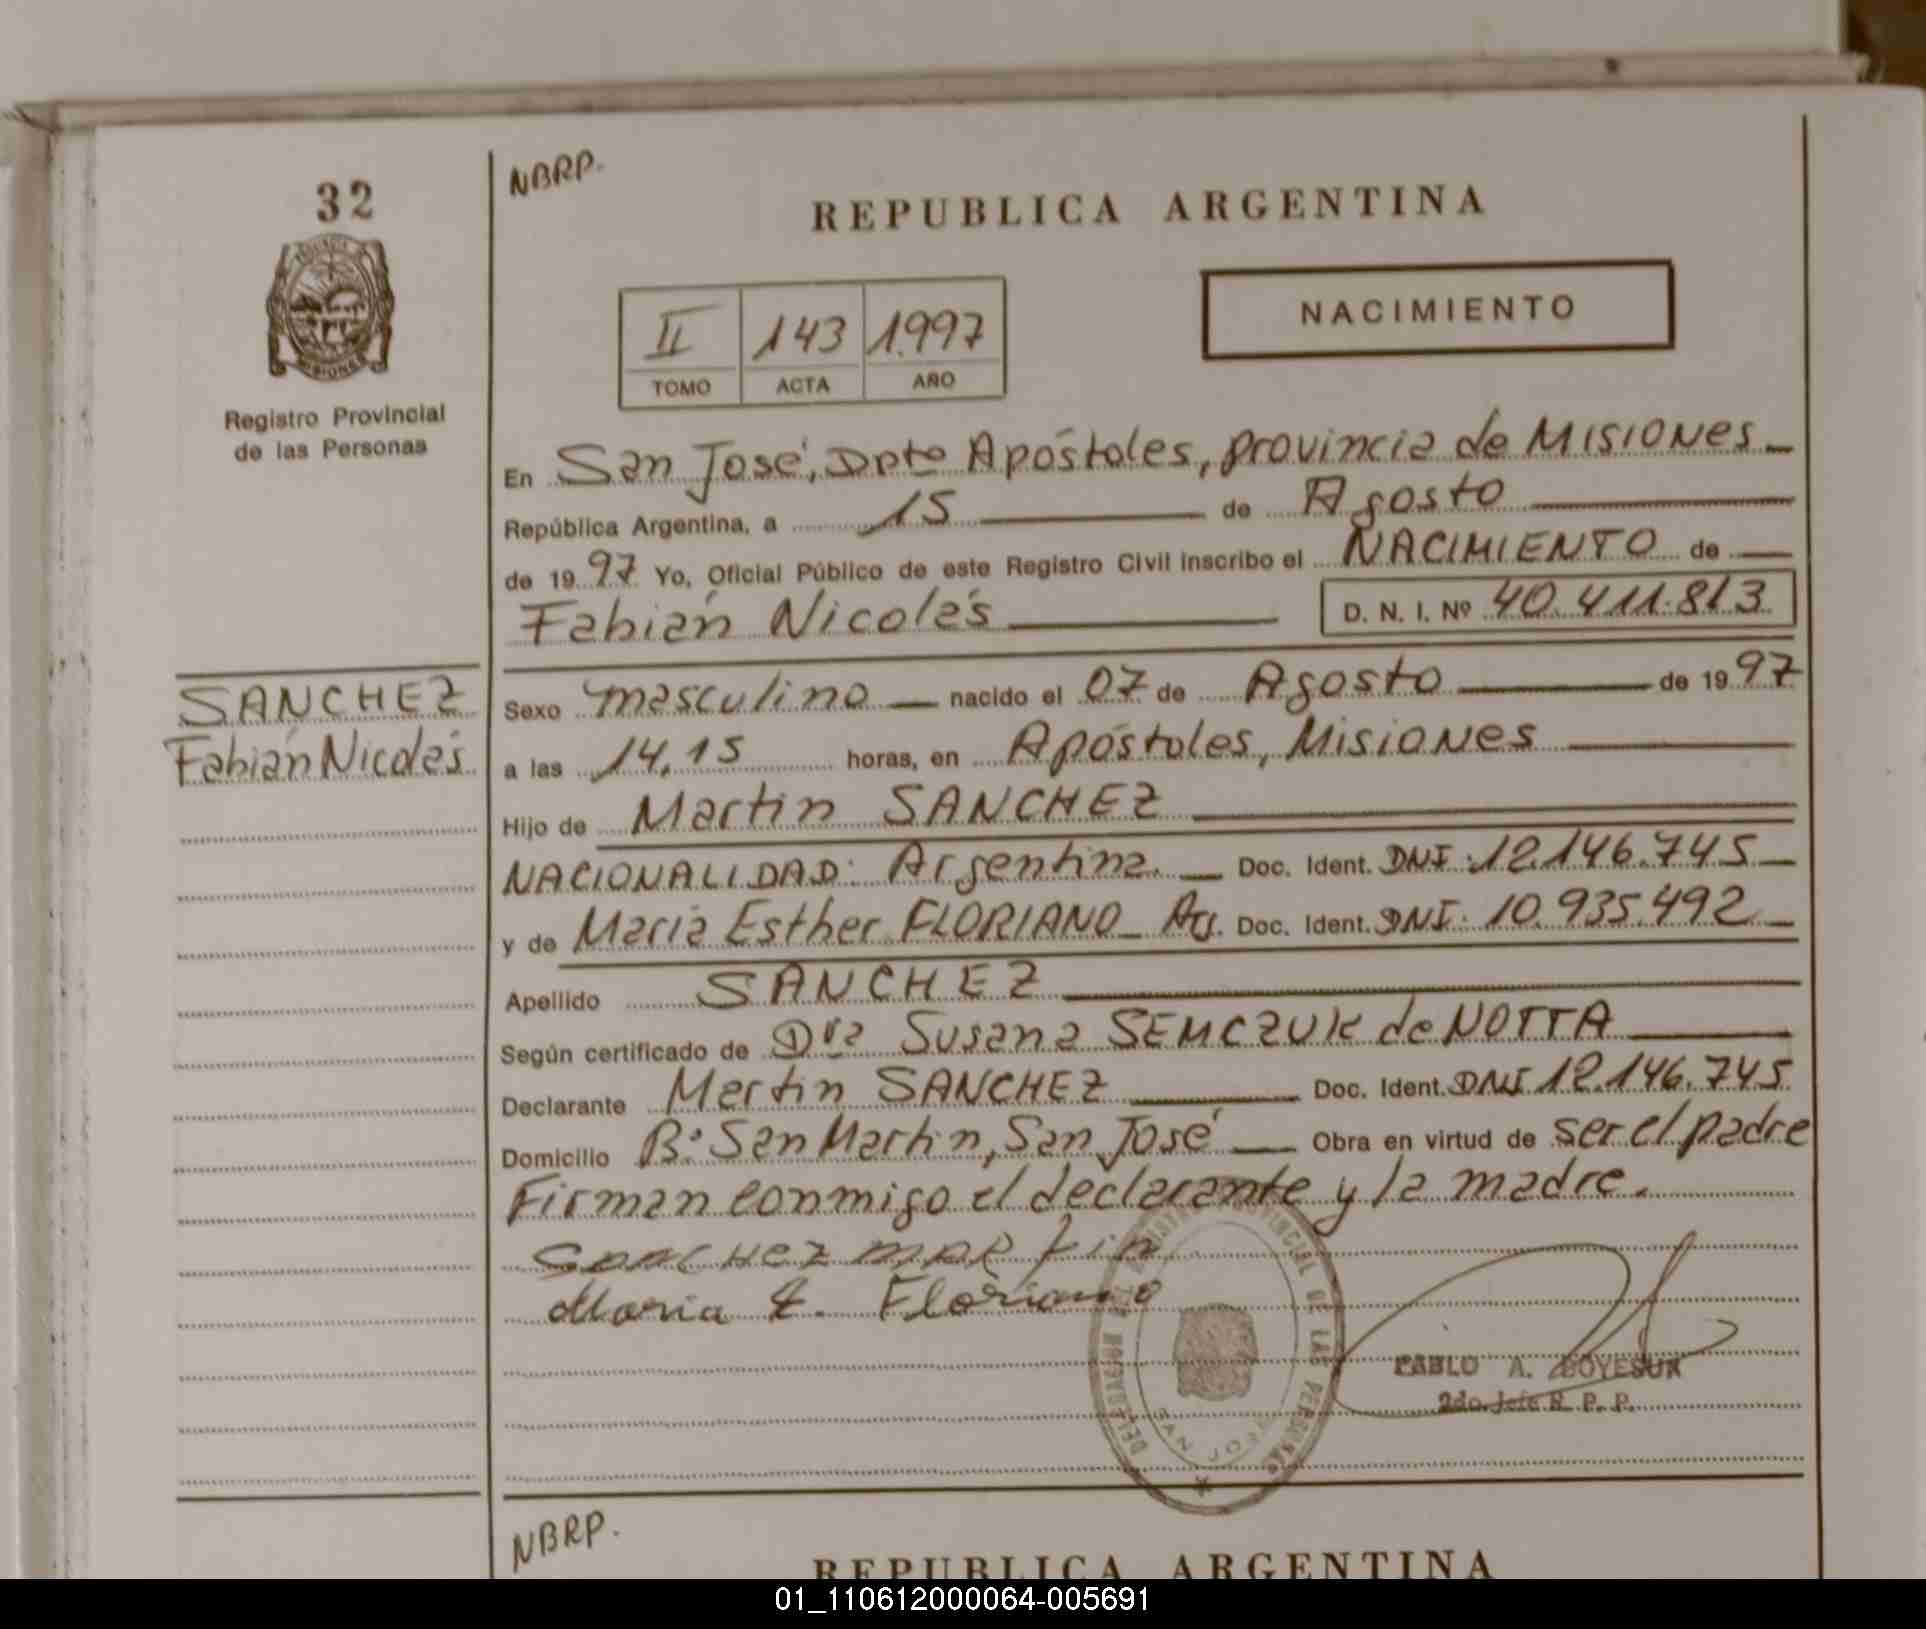 32
NBRP.
REPUBLICA ARGENTINA
II 143 1.997
TOMO ACTA AÑO
NACIMIENTO
Registro Provincial
de las Personas
En San José, Dpto Apóstoles, provincia de MISIONES
República Argentina, a 15 de Agosto
de 1997 Yo, Oficial Público de este Registro Civil inscribo el NACIMIENTO de
Fabián Nicolás
D. N. I. Nº 40.411.813
SANCHEZ
Fabián Nicolás
Sexo masculino nacido el 07 de Agosto de 1997
a las 14,15 horas, en Apóstoles, Misiones
Hijo de Martin SANCHEZ
NACIONALIDAD: Argentina. Doc. Ident. DNI: 12.146.745
y de Maria Esther FLORIANO Arg. Doc. Ident. DNI: 10.935.492
Apellido SANCHEZ
Según certificado de Dra Susana SEMCZUK de NOTTA
Declarante Martin SANCHEZ Doc. Ident. DNI 12.146.745
Domicilio B: San Martin, San José Obra en virtud de ser el padre
Firman conmigo el declarante y la madre.
Sanchez martin
Maria E. Floriano
DELEGACION REGISTRO PROVINCIAL DE LAS PERSONAS
SAN JOSE
PABLO A. BOYESUK
2do. Jefe R. P. P.
NBRP.
REPUBLICA ARGENTINA
01_110612000064-005691